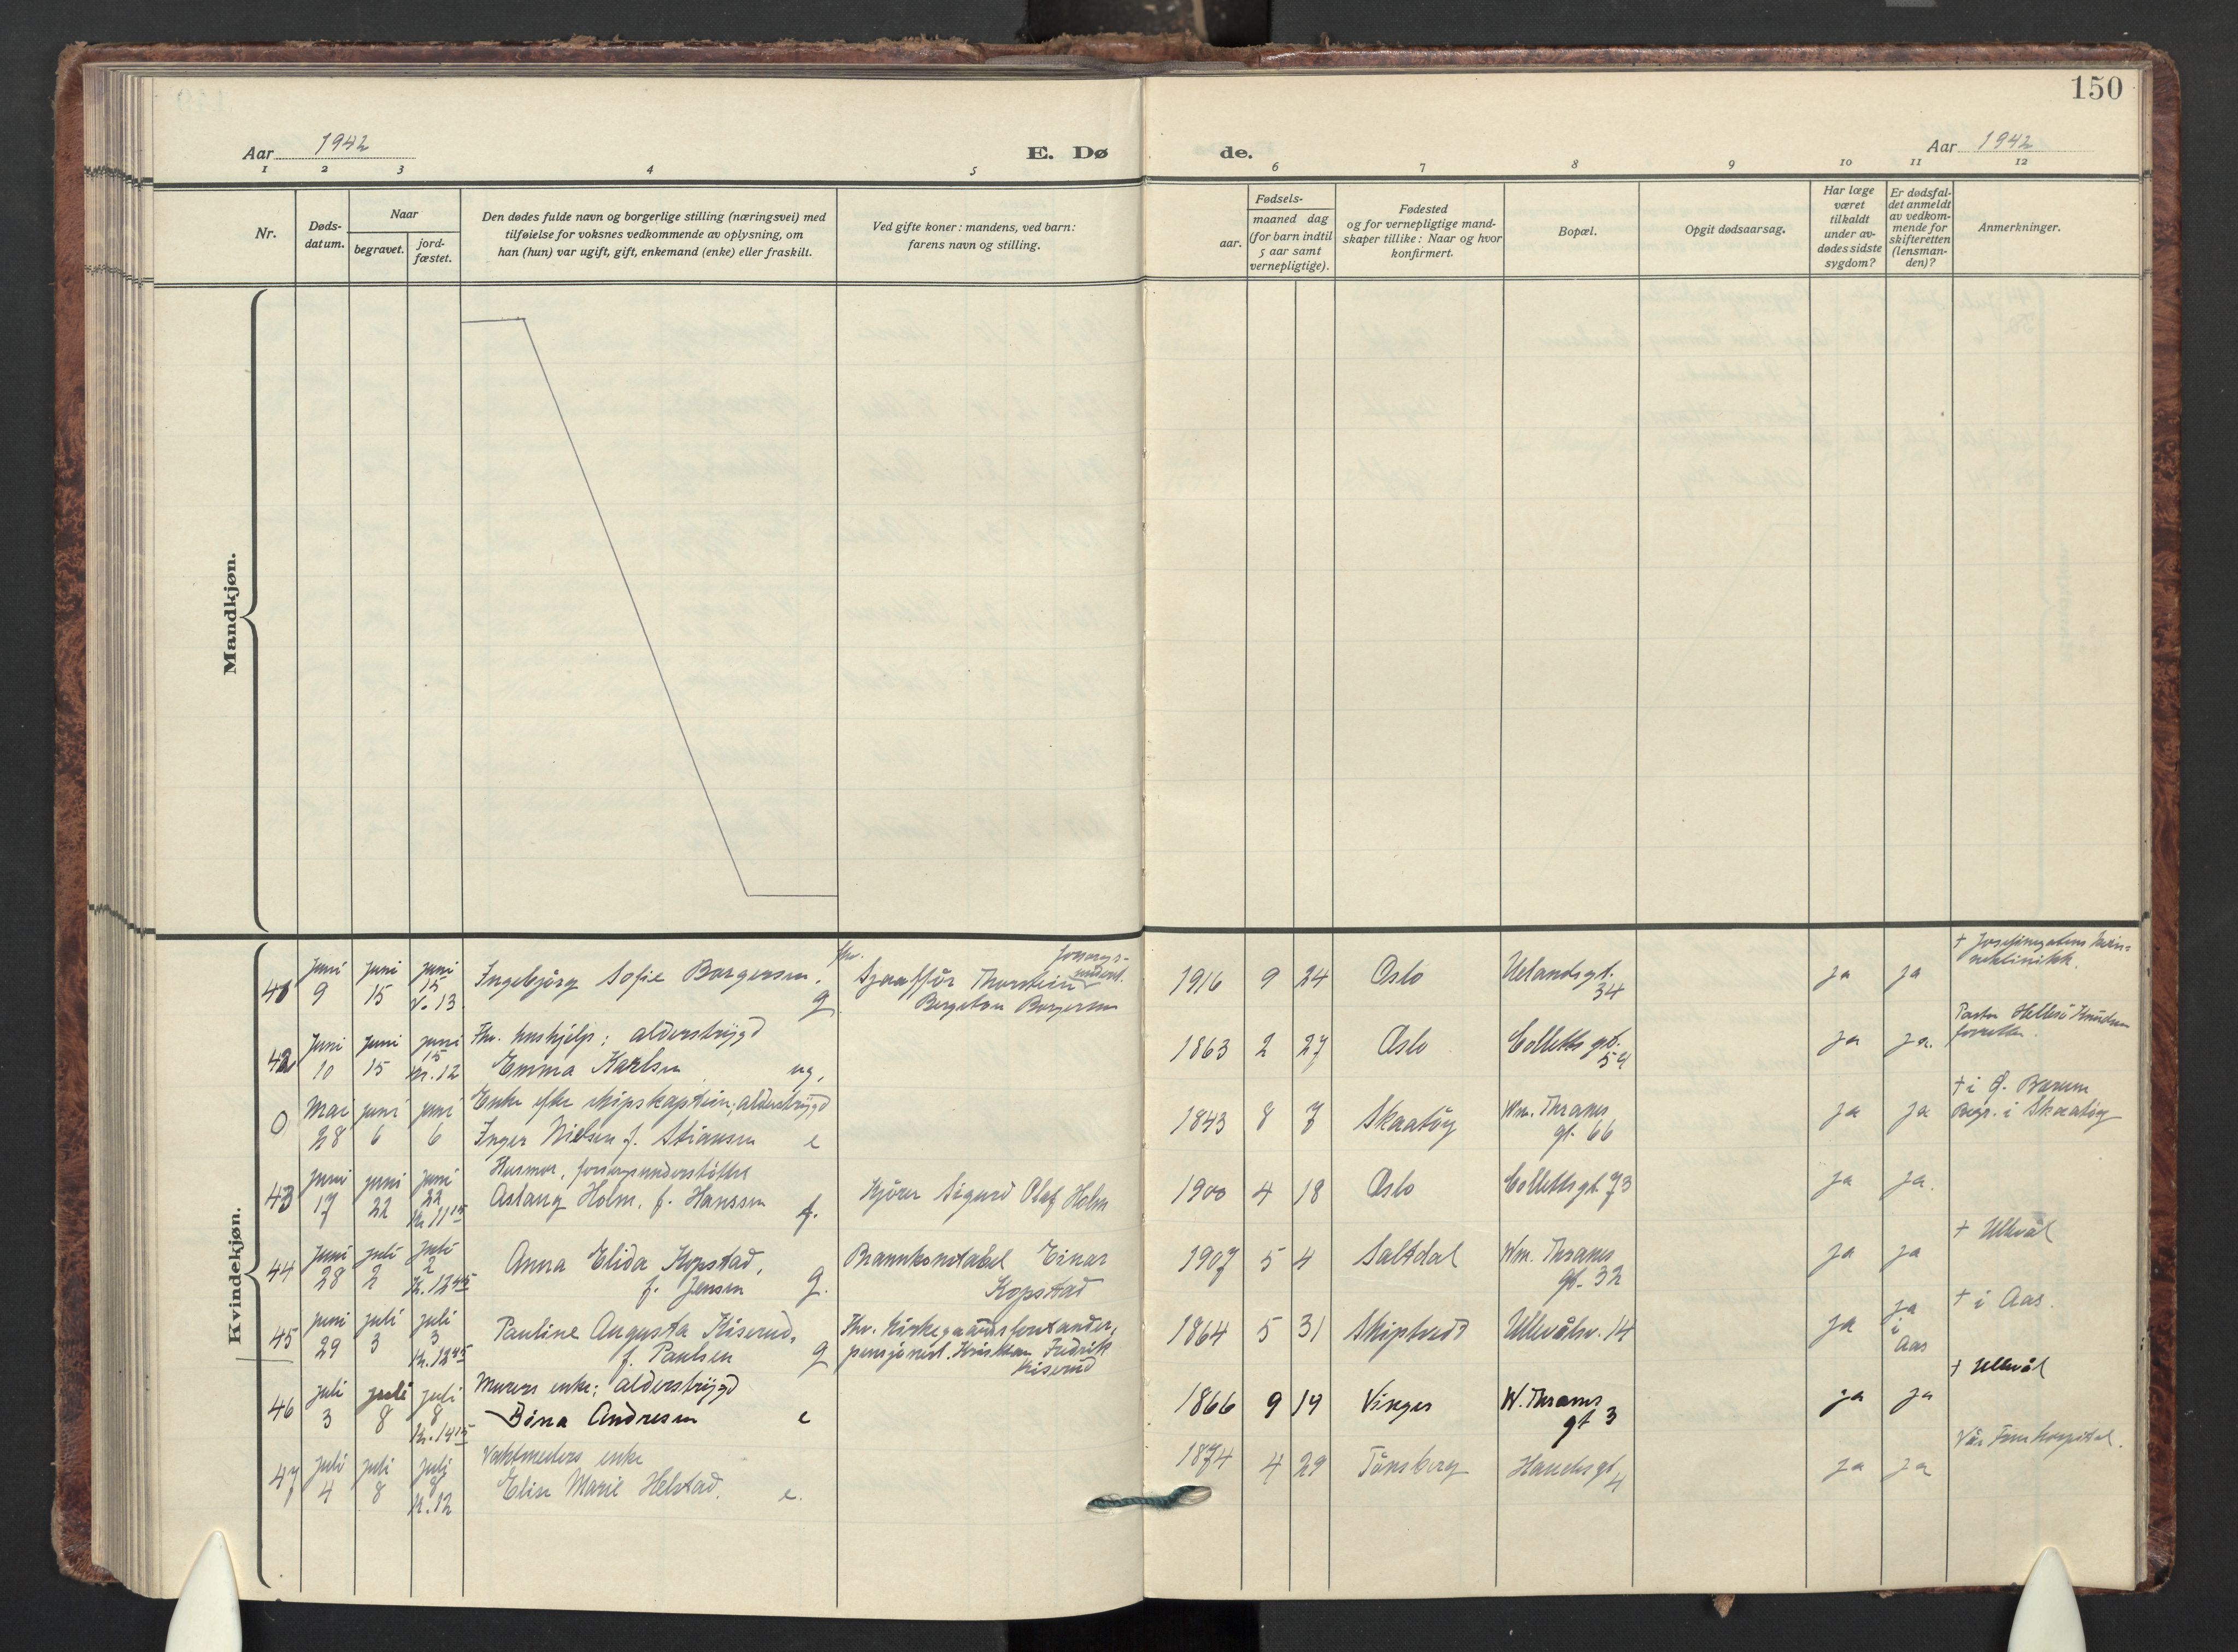 150
Aar 1942
E. Dø
de.
Aar 1942
1 2 3 4 5 6 7 8 9 10 11 12
Nr.
Døds-
datum.
Naar
begravet.
jord-
fæstet.
Den dødes fulde navn og borgerlige stilling (næringsvei) med
tilføielse for voksnes vedkommende av oplysning, om
han (hun) var ugift, gift, enkemand (enke) eller fraskilt.
Ved gifte koner: mandens, ved barn:
farens navn og stilling.
Fødsels-
aar.
maaned dag
(for barn indtil
5 aar samt
vernepligtige).
Fødested
og for vernepligtige mand-
skaper tillike: Naar og hvor
konfirmert.
Bopæl.
Opgit dødsaarsag.
Har læge
været
tilkaldt
under av-
dødes sidste
sygdom?
Er dødsfal-
det anmeldt
av vedkom-
mende for
skifteretten
(lensman-
den)?
Anmerkninger.
Mandkjøn.
Kvindekjøn.
41 juni 9 juni 15 juni 15 Ingebjørg Sofie Borgersen, g.
fhv. Sjaaffør Thorstein
Bergeton Borgersen
1916 9 24 Oslo Uelandsgt. 34 ja ja
42 juni 10 juni 15 juni 15 kl. 12 Fhv. hushjelp; alderstrygd
Emma Karlsen ug.
1863 2 27 Oslo Colletts gt. 54 ja ja.
0 Mai 28 juni 6 juni 6 Enke efter skipskaptein; alderstrygd
Inger Nielsen f. Stiansen e
1843 8 7 Skaatøy Wm. Thranes gt. 66 ja ja
† i Ø. Bærum
Begr. i Skaatøy
43 juni 17 juni 22 juni 22 kl. 11 15 Husmor, forsorgsunderstøttet
Aslaug Holm, f. Hanssen f.
Kjører Sigurd Olaf Holm
1900 4 18 Oslo Collettsgt. 73 ja ja.
44 juni 28 juli 2 juli 2 kl. 12 45 Anna Elida Kopstad,
f. Jensen g.
Brannkonstabel Einar
Kopstad
1907 5 4 Saltdal Wm. Thranes gt. 32 ja ja
† Ullevål
45 juni 29 juli 3 juli 3 kl. 12 45 Pauline Augusta Kiserud,
f. Paulsen g
Fhv. Kirkegaardsforstander,
pensjonist. Kristian Fredrik
Kiserud
1864 5 31 Skiptvedt Ullevålsv. 14 ja ja i Aas
† i Aas.
46 juli 3 juli 8 juli 8 kl. 14 15 Murers enke; alderstrygd
Andresen e
1866 9 19 Vinger W. Thranes gt 3 ja ja
† Ullevål
47 juli 4 juli 8 juli 8 kl. 12 Vaktmesters enke
Elise Marie Helstad. e.
1874 4 29 Tønsberg Hauchsgt. 4 ja ja
Vår Frue hospital.